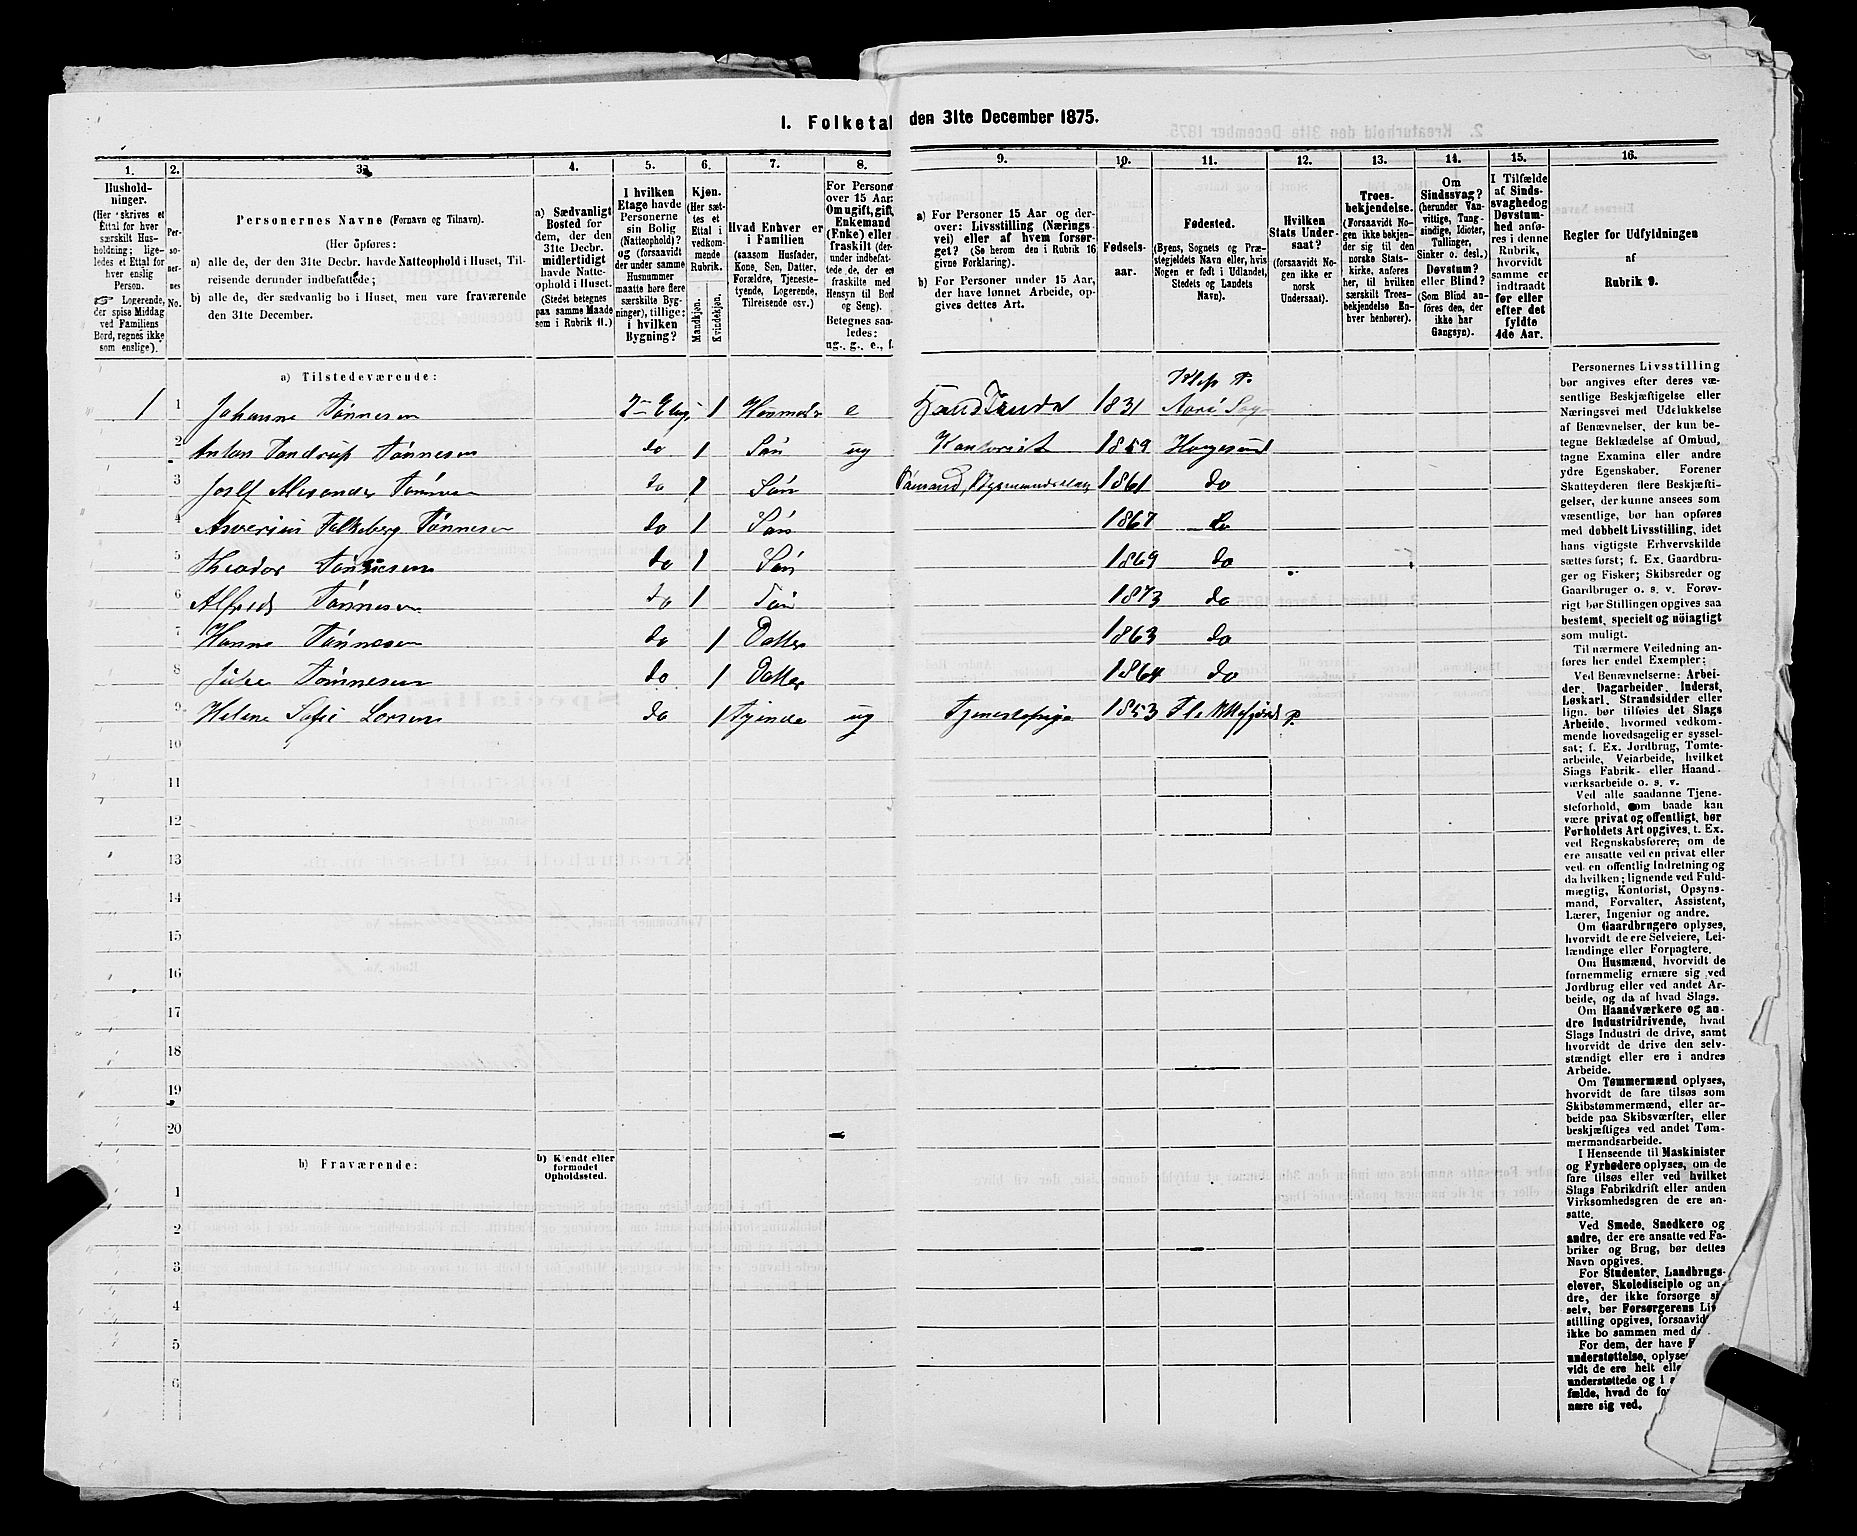 I. Folketal den 31te December 1875.
1. 2. 3. 4. 5. 6. 7. 8. 9. 10. 11. 12. 13. 14. 15. 16.
Hushold-
ninger.
(Her skrives et
Ettal for hver
særskilt Hus-
holdning; lige-
ledes et Ettal for
hver enslig
Person.
☞ Logerende,
der spise Middag
ved Familiens
Bord, regnes ikke
som enslige).
Per-
so-
ner-
nes
No.
Personernes Navne (Fornavn og Tilnavn).
(Her opføres:
a) alle de, der den 31te Decbr. havde Natteophold i Huset, Til-
reisende derunder indbefattede;
b) alle de, der sædvanlig bo i Huset, men vare fraværende
den 31te December.
a) Sædvanligt
Bosted for
dem, der den
31te Decbr.
midlertidigt
havde Natte-
ophold i Huset.
(Stedet betegnes
paa samme Maade
som i Rubrik 11.)
I hvilken
Etage havde
Personerne
sin Bolig
(Natteophold)?
og (forsaavidt
der under samme
Husnummer
maatte høre flere
særskilte Byg-
ninger), tillige:
i hvilken
Bygning?
Kjøn.
(Her sæt-
tes et
Ettal i
vedkom-
mende
Rubrik.
Mandkjøn.
Kvindekjøn.
Hvad Enhver er
i Familien
(saasom Husfader,
Kone, Søn, Datter,
Forældre, Tjeneste-
tyende, Logerende,
Tilreisende osv.)
For Persone
over 15 Aar:
Om ugift, gift,
Enkemand
(Enke) eller
fraskilt (der-
under indbefat-
tede de, der e
fraskilte med
Hensyn til Bord
og Seng).
Betegnes saa-
ledes:
ug., g., e., f.
a) For Personer 15 Aar og der-
over: Livsstilling (Nærings-
vei) eller af hvem forsør-
get? (Se herom den i Rubrik 16
givne Forklaring).
b) For Personer under 15 Aar,
der have lønnet Arbeide, op-
gives dettes Art.
Fødsels-
aar.
Fødested.
(Byens, Sognets og Præ-
stegjeldets Navn eller, hvis
Nogen er født i Udlandet,
Stedets og Landets
Navn).
Hvilken
Stats Under-
saat?
(forsaavidt No-
gen ikke er
norsk
Undersaat).
Troes-
bekjendelse.
(Forsaavidt No-
gen ikke bekjen-
der sig til den
norske Stats-
kirke, anføres
her, til hvilken
særskilt Troes-
bekjendelse En-
hver henhører).
Om
Sindssvag?
(herunder Van-
vittige, Tung-
sindige, Idioter,
Tullinger,
Sinker o. desl.)
Døvstum?
eller Blind?
(Som Blind an-
føres den, der
ikke har
Gangsyn).
I Tilfælde
af Sinds-
svaghed og
Døvstum-
hed anfø-
res i denne
Rubrik,
hvorvidt
samme er
indtraadt
før eller
efter det
fyldte
4de Aar.
Regler for Udfyldningen
af
Rubrik 9.
a) Tilstedeværende:
Klep P.
1 1 Johanne Tönnesen 2n Etag 1 Husmoder e 1831 Sogn
2 Anton Tandrup Tönnesen do 1 Sön ug Kontorist 1859 Haugesund
3 Josef Alexander Tönnesen do 1 Sön 1861 do
4 Asverius Falkeberg Tönnesen do 1 Sön 1867 do
5 Theodor Tönnesen do 1 Sön 1869 do
6 Alfred Tönnesen do 1 Sön 1873 do
7 Hanne Tönnesen do 1 Datter 1863 do
8 Tönnesen do 1 Datter 1864 do
9 Helene Sofie Larsen do 1 Tyende ug Tjenestepige 1853 Flekkefjord P.
10
11
12
13
14
15
16
17
18
19
20
b) Fraværende:
b) Kjendt eller
formodet
Opholdssted.
1
2
3
4
5
6
Personernes Livsstilling
bør angives efter deres væ-
sentlige Beskjæftigelse eller
Næringsvei med Udelukkelse
af Benævnelser, der kun be-
tegne Beklædelse af Ombud,
tagne Examina eller andre
ydre Egenskaber. Forener
Skatteyderen flere Beskjæfti-
gelser, der kunne ansees som
væsentlige, bør han opføres
med dobbelt Livsstilling, idet
hans vigtigste Erhvervskilde
sættes først; f. Ex. Gaardbru-
ger og Fisker; Skibsreder og
Gaardbruger o. s. v. Forøv-
rigt bør Stillingen opgives saa
bestemt, specielt og nöiagtigt
som muligt.
Til nærmere Veiledning an-
føres her endel Exempler:
Ved Benævnelserne: Arbei-
der, Dagarbeider, Inderst,
Løskarl, Strandsidder eller
lign. bør tilføies det Slags
Arbeide, hvormed vedkom-
mende hovedsagelig er syssel-
sat; f. Ex. Jordbrug, Tømte-
arbeide, Veiarbeide, hvilket
Slags Fabrik- eller Haand-
værksarbeide o. s. v.
Ved alle saadanne Tjene-
steforhold, som baade kan
være privat og offentligt, bør
Forholdets Art opgives, t. Ex.
ved Regnskabsførere; om de
ere ansatte ved en privat eller
ved en offentlig Indretning og
da hvilken; lignende ved Fuld-
mægtig, Kontorist, Opsyns-
mand, Forvalter, Assistent,
Lærer, Ingeniør og andre.
Om Gaardbrugere oplyses,
hvorvidt de ere Selveiere, Lei-
lændinge eller Forpagtere.
Om Husmænd, hvorvidt de
fornemmelig ernære sig ved
Jordbrug eller ved andet Ar-
beide, og da af hvad Slags.
Om Haandværkere og an-
dre Industridrivende, hvad
Slags Industri de drive, samt
hvorvidt de drive den selv-
stændigt eller ere i andres
Arbeide.
Om Tømmermænd oplyses,
hvorvidt de fare tilsøs som
Skibstømmermænd, eller ar-
beide paa Skibsværfter, eller
beskjæftiges ved andet Tøm-
mermandsarbeide.
I Henseende til Maskinister
og Fyrbødere oplyses, om de
fare tilsøs eller ved hvilket
Slags Fabrikdrift eller anden
Virksomhedsgren de ere an-
satte.
Ved Smede, Snedkere og
andre, der ere ansatte ved Fa-
briker og Brug, bør dettes
Navn opgives.
For Studenter, Landbrugs-
elever, Skoledisciple og an-
dre, der ikke forsørge si
selv, bør Forsørgerens Liv
stilling opgives, forsaavid
ikke bo sammen med d
For dem, der have
understøttelse, oplyse
vidt de ere helt elle
understøttede og i
fælde, hvad de fo
nære sig ved.